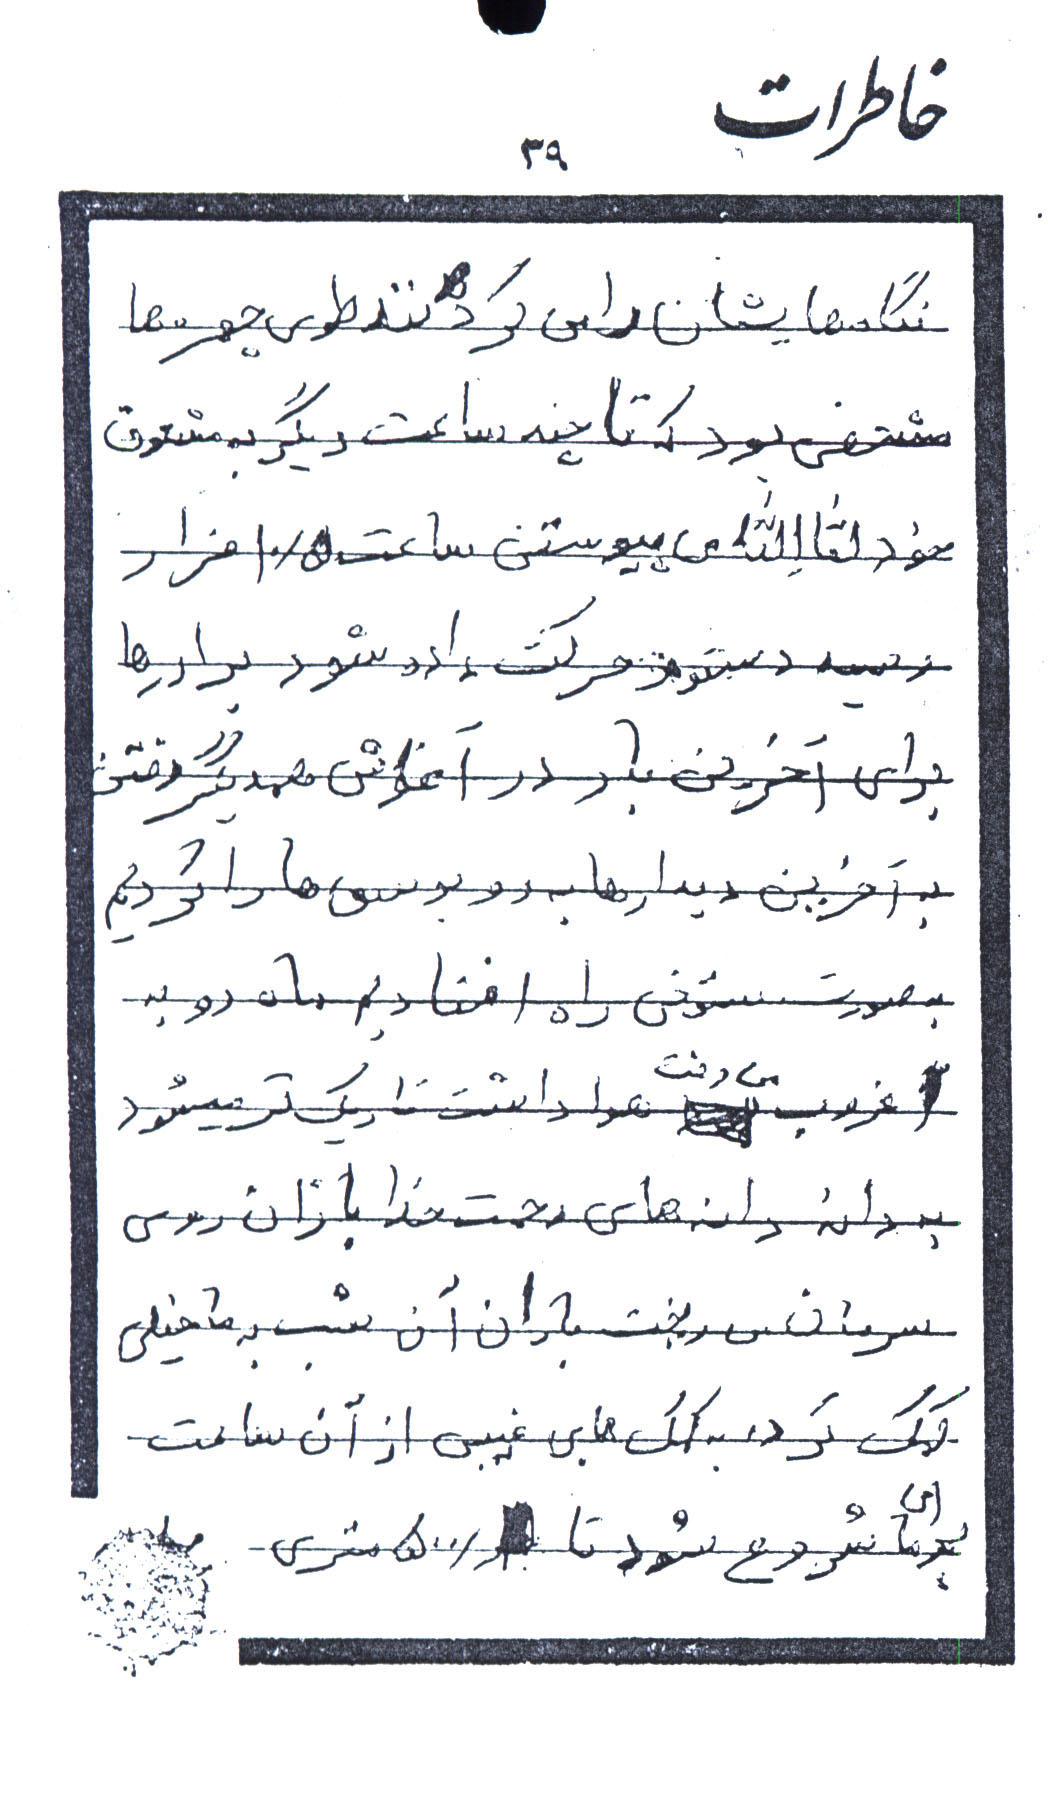 خاطرات
۳۹
نگاه‌هایشان را می کردند طوری چهره‌ها
مشخص بود که تا چند ساعت دیگر به معشوق
خود لقاالله می پیوستن ساعت ۵/۱۰ فرار
رسید دستور حرکت داده شود برادرها
برای آخرین بار در آغوش همدیگر رفتن
به آخرین دیدارها به رو بوسی ها را کردیم
به صورت ستونی راه افتادیم ماه رو به
غروب می رفت هوا داشت تاریک تر میشود
به دانه دانه های رحمت خدا باران روی
سرمان می ریخت باران آن شب به ما خیلی
کمک کرد به کمک های غیبی از آن ساعت
برای ما شروع شود تا ۵۰۰ متری